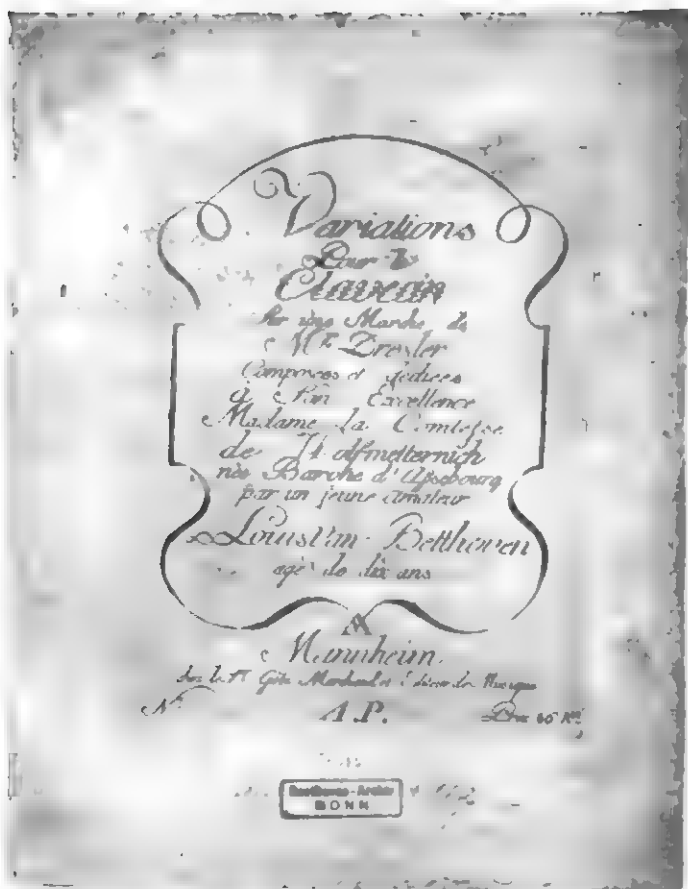 Variations
Pour le
Clavecin
Sur une Marche de
Mr. Dresler
Composees et dediees
à Son Excellence
Madame la Comtesse
de Wolfmetternich
née Baronne d'Assebourg
par un jeune amateur
Louis van Betthoven
agé de dix ans
Mannheim
chez le Sr Götz Marchand et Editeur de Musique
No
A.P.
Prix 50 Xr
Beethoven-Archiv
BONN